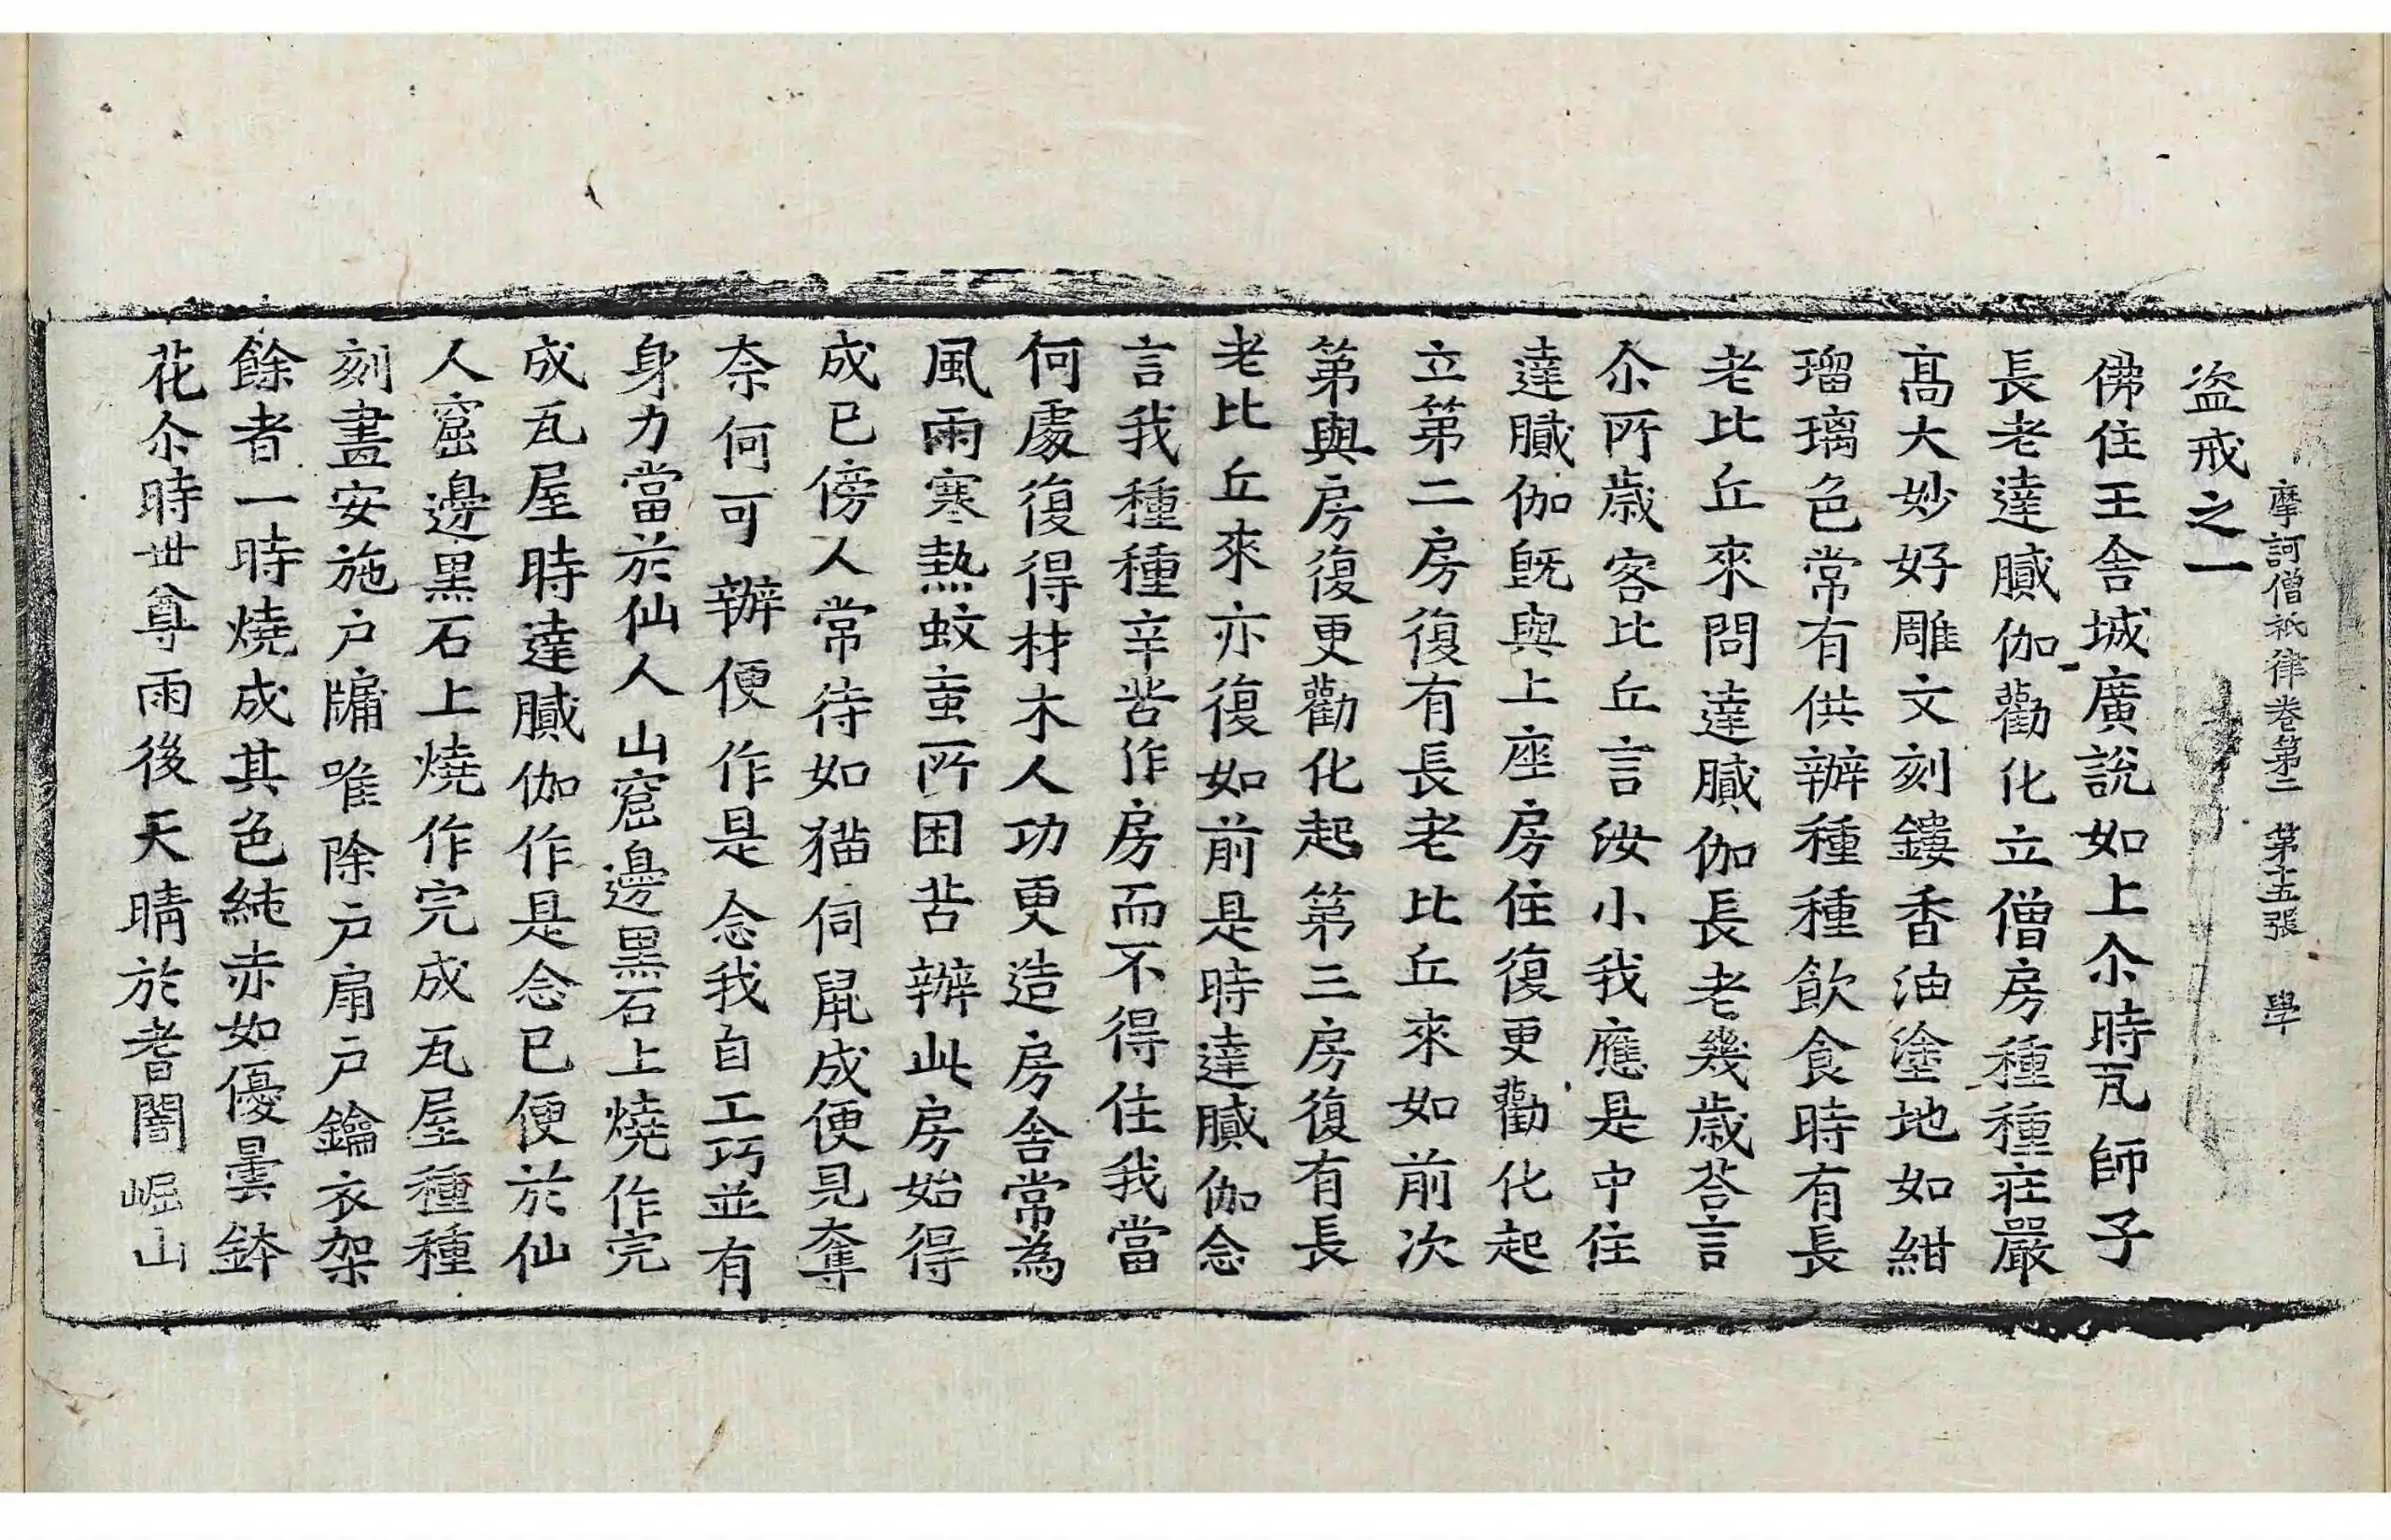 摩訶僧祇律卷第二 第十五張 學
盗戒之一
佛住王舍城廣說如上尒時瓦師子
長老達膩伽勸化立僧房種種莊嚴
髙大妙好雕文刻鏤香油塗地如紺
瑠璃色常有供辦種種飲食時有長
老比丘來問達膩伽長老幾歲荅言
尒所歲客比丘言汝小我應是中住
達膩伽旣與上座房住復更勸化起
立第二房復有長老比丘來如前次
第與房復更勸化起第三房復有長
老比丘來亦復如前是時達膩伽念
言我種種辛苦作房而不得住我當
何處復得材木人功更造房舍常為
風雨寒熱蚊䖟所困苦辦此房始得
成已傍人常待如猫伺鼠成便見奪
奈何可辦便作是念我自工巧並有
身力當於仙人山窟邊黑石上燒作完
成瓦屋時達膩伽作是念已便於仙
人窟邊黑石上燒作完成瓦屋種種
刻畫安施户牖唯除户扇户鑰衣架
餘者一時燒成其色純赤如優曇鉢
花尒時世尊雨後天晴於耆闍崛山